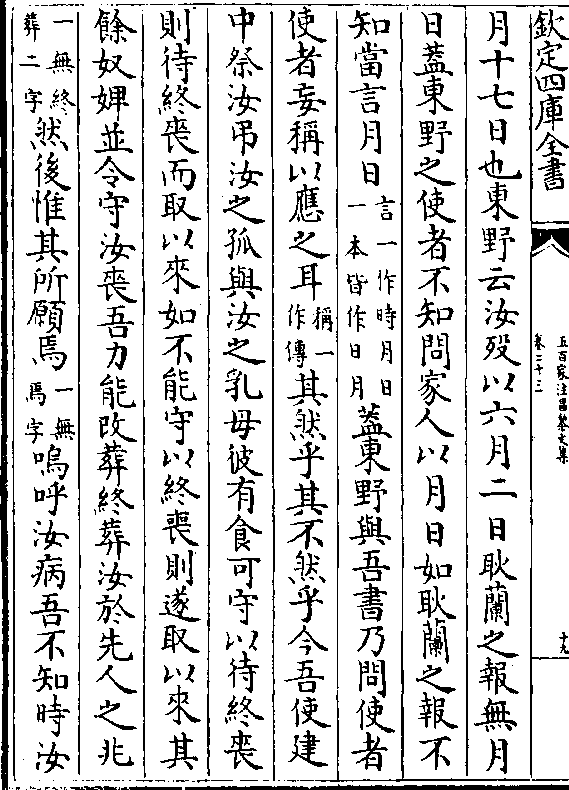 欽定四庫全書
五百家注昌黎文集
卷二十三
十九
月十七日也東野云汝殁以六月二日耿蘭之報無月
日蓋東野之使者不知問家人以月日如耿蘭之報不
知當言月日言一作時月日一本皆作日月蓋東野與吾書乃問使者
使者妄稱以應之耳稱一作傳其然乎其不然乎今吾使建
中祭汝弔汝之孤與汝之乳母彼有食可守以待終喪
則待終喪而取以來如不能守以終喪則遂取以來其
餘奴婢並令守汝喪吾力能改葬終葬汝於先人之兆
一無終葬二字然後惟其所願焉一無焉字嗚呼汝病吾不知時汝